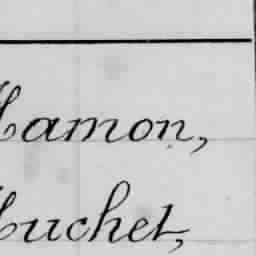 Hamon,
Huchet,